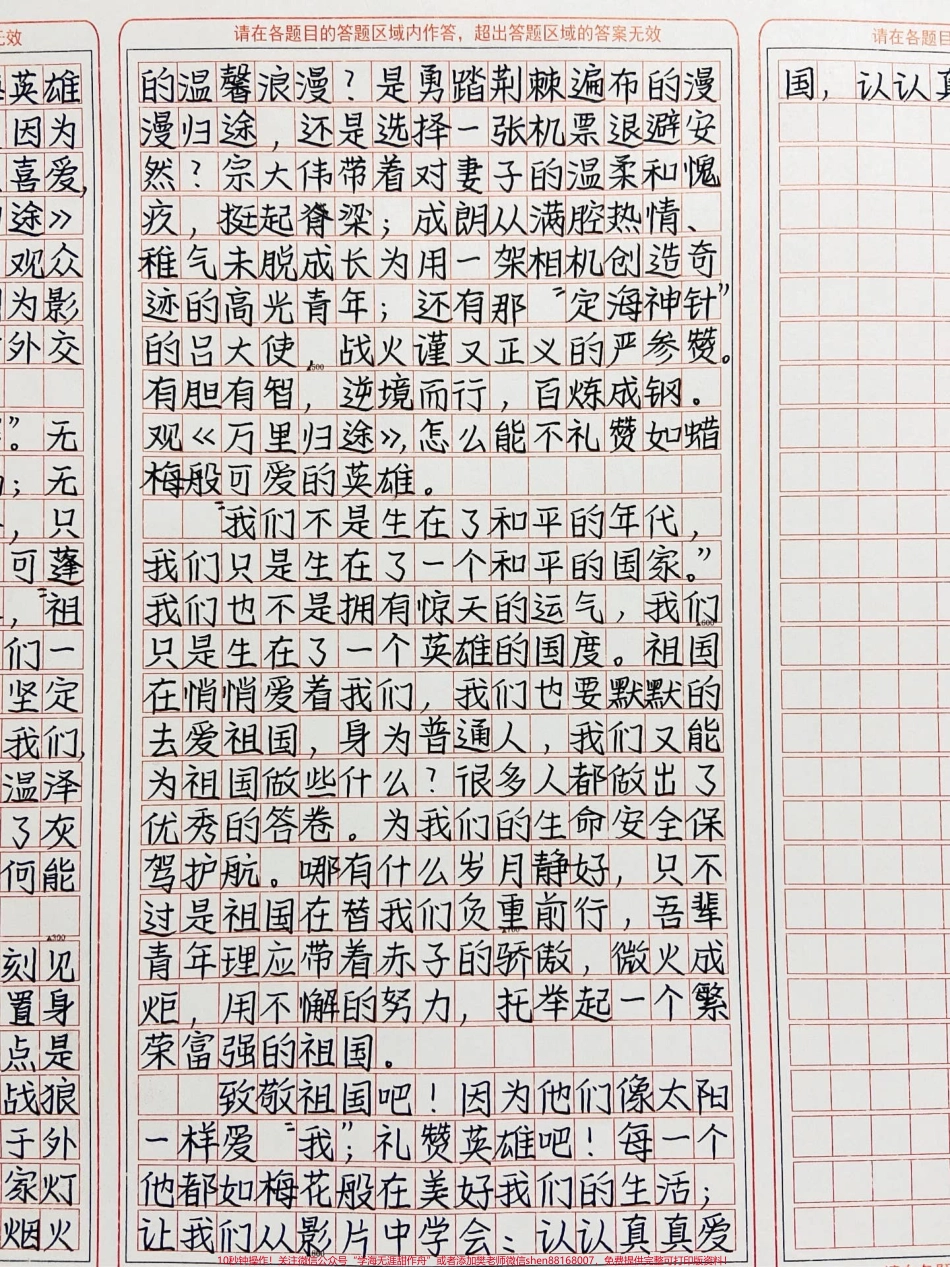 无效
英雄
因为
喜爱,
途》
观众
为影
外交
”。无
;无
,只
可蓬
,“祖
们一
坚定
我们,
温泽
了灰
何能
▲300
刻见
置身
点是
战狼
于外
家灯
烟火
请在各题目的答题区域内作答，超出答题区域的答案无效
的温馨浪漫？是勇踏荆棘遍布的漫
漫归途，还是选择一张机票退避安
然？宗大伟带着对妻子的温柔和愧
疚，挺起脊梁；成朗从满腔热情、
稚气未脱成长为用一架相机创造奇
迹的高光青年；还有那“定海神针”
的吕大使，战火谨又正义的严参赞。
▲500
有胆有智，逆境而行，百炼成钢。
观《万里归途》，怎么能不礼赞如蜡
梅般可爱的英雄。
“我们不是生在了和平的年代，
我们只是生在了一个和平的国家。”
我们也不是拥有惊天的运气，我们
▲600
只是生在了一个英雄的国度。祖国
在悄悄爱着我们，我们也要默默的
去爱祖国，身为普通人，我们又能
为祖国做些什么？很多人都做出了
优秀的答卷。为我们的生命安全保
驾护航。哪有什么岁月静好，只不
过是祖国在替我们负重前行，吾辈
▲700
青年理应带着赤子的骄傲，微火成
炬，用不懈的努力，托举起一个繁
荣富强的祖国。
致敬祖国吧！因为他们像太阳
一样爱“我”；礼赞英雄吧！每一个
他都如梅花般在美好我们的生活；
让我们从影片中学会：认认真真爱
▲800
10秒钟操作！关注微信公众号“学海无涯甜作舟”或者添加樊老师微信shen88168007，免费提供完整可打印版资料！
请在各题目
国，认认真